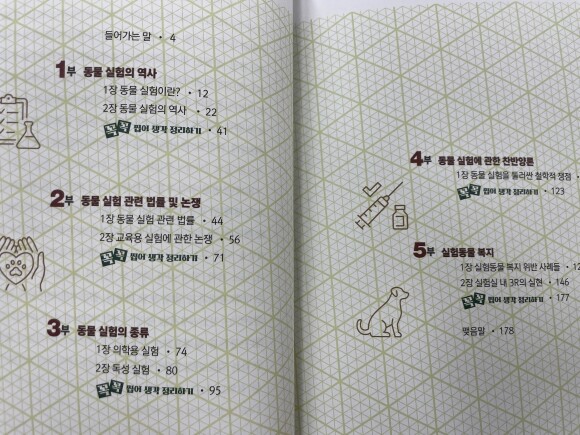 들어가는 말 • 4
1부 동물 실험의 역사
1장 동물 실험이란? • 12
2장 동물 실험의 역사 • 22
꼭꼭 씹어 생각 정리하기 • 41
2부 동물 실험 관련 법률 및 논쟁
1장 동물 실험 관련 법률 • 44
2장 교육용 실험에 관한 논쟁 • 56
꼭꼭 씹어 생각 정리하기 • 71
3부 동물 실험의 종류
1장 의학용 실험 • 74
2장 독성 실험 • 80
꼭꼭 씹어 생각 정리하기 • 95
4부 동물 실험에 관한 찬반양론
1장 동물 실험을 둘러싼 철학적 쟁점 •
꼭꼭 씹어 생각 정리하기 • 123
5부 실험동물 복지
1장 실험동물 복지 위반 사례들 •
2장 실험실 내 3R의 실현 • 146
꼭꼭 씹어 생각 정리하기 • 177
맺음말 • 178